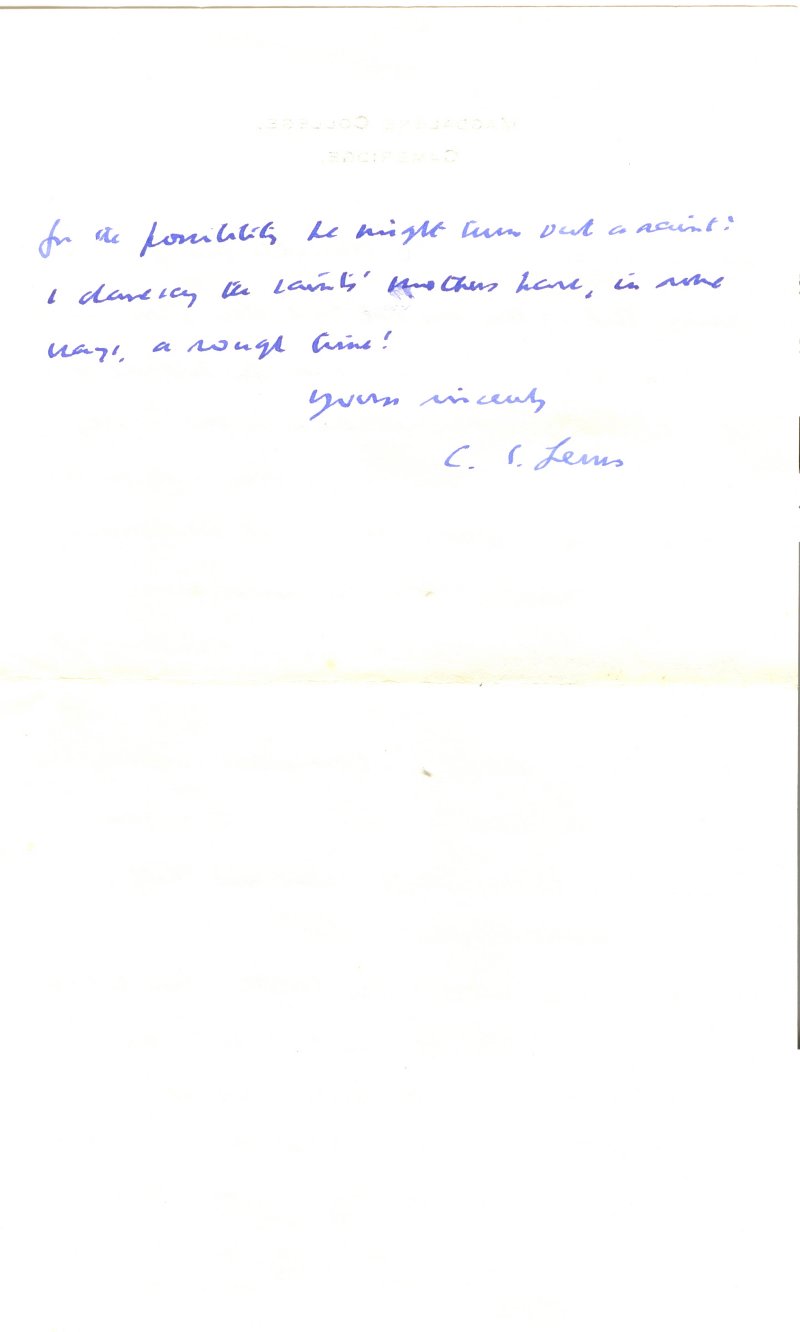 MAGDALENE COLLEGE,
CAMBRIDGE.
for the possibility he might turn out a saint!
I daresay the saints' mothers have, in some
ways, a rough time!
Yours sincerely
C. S. Lewis